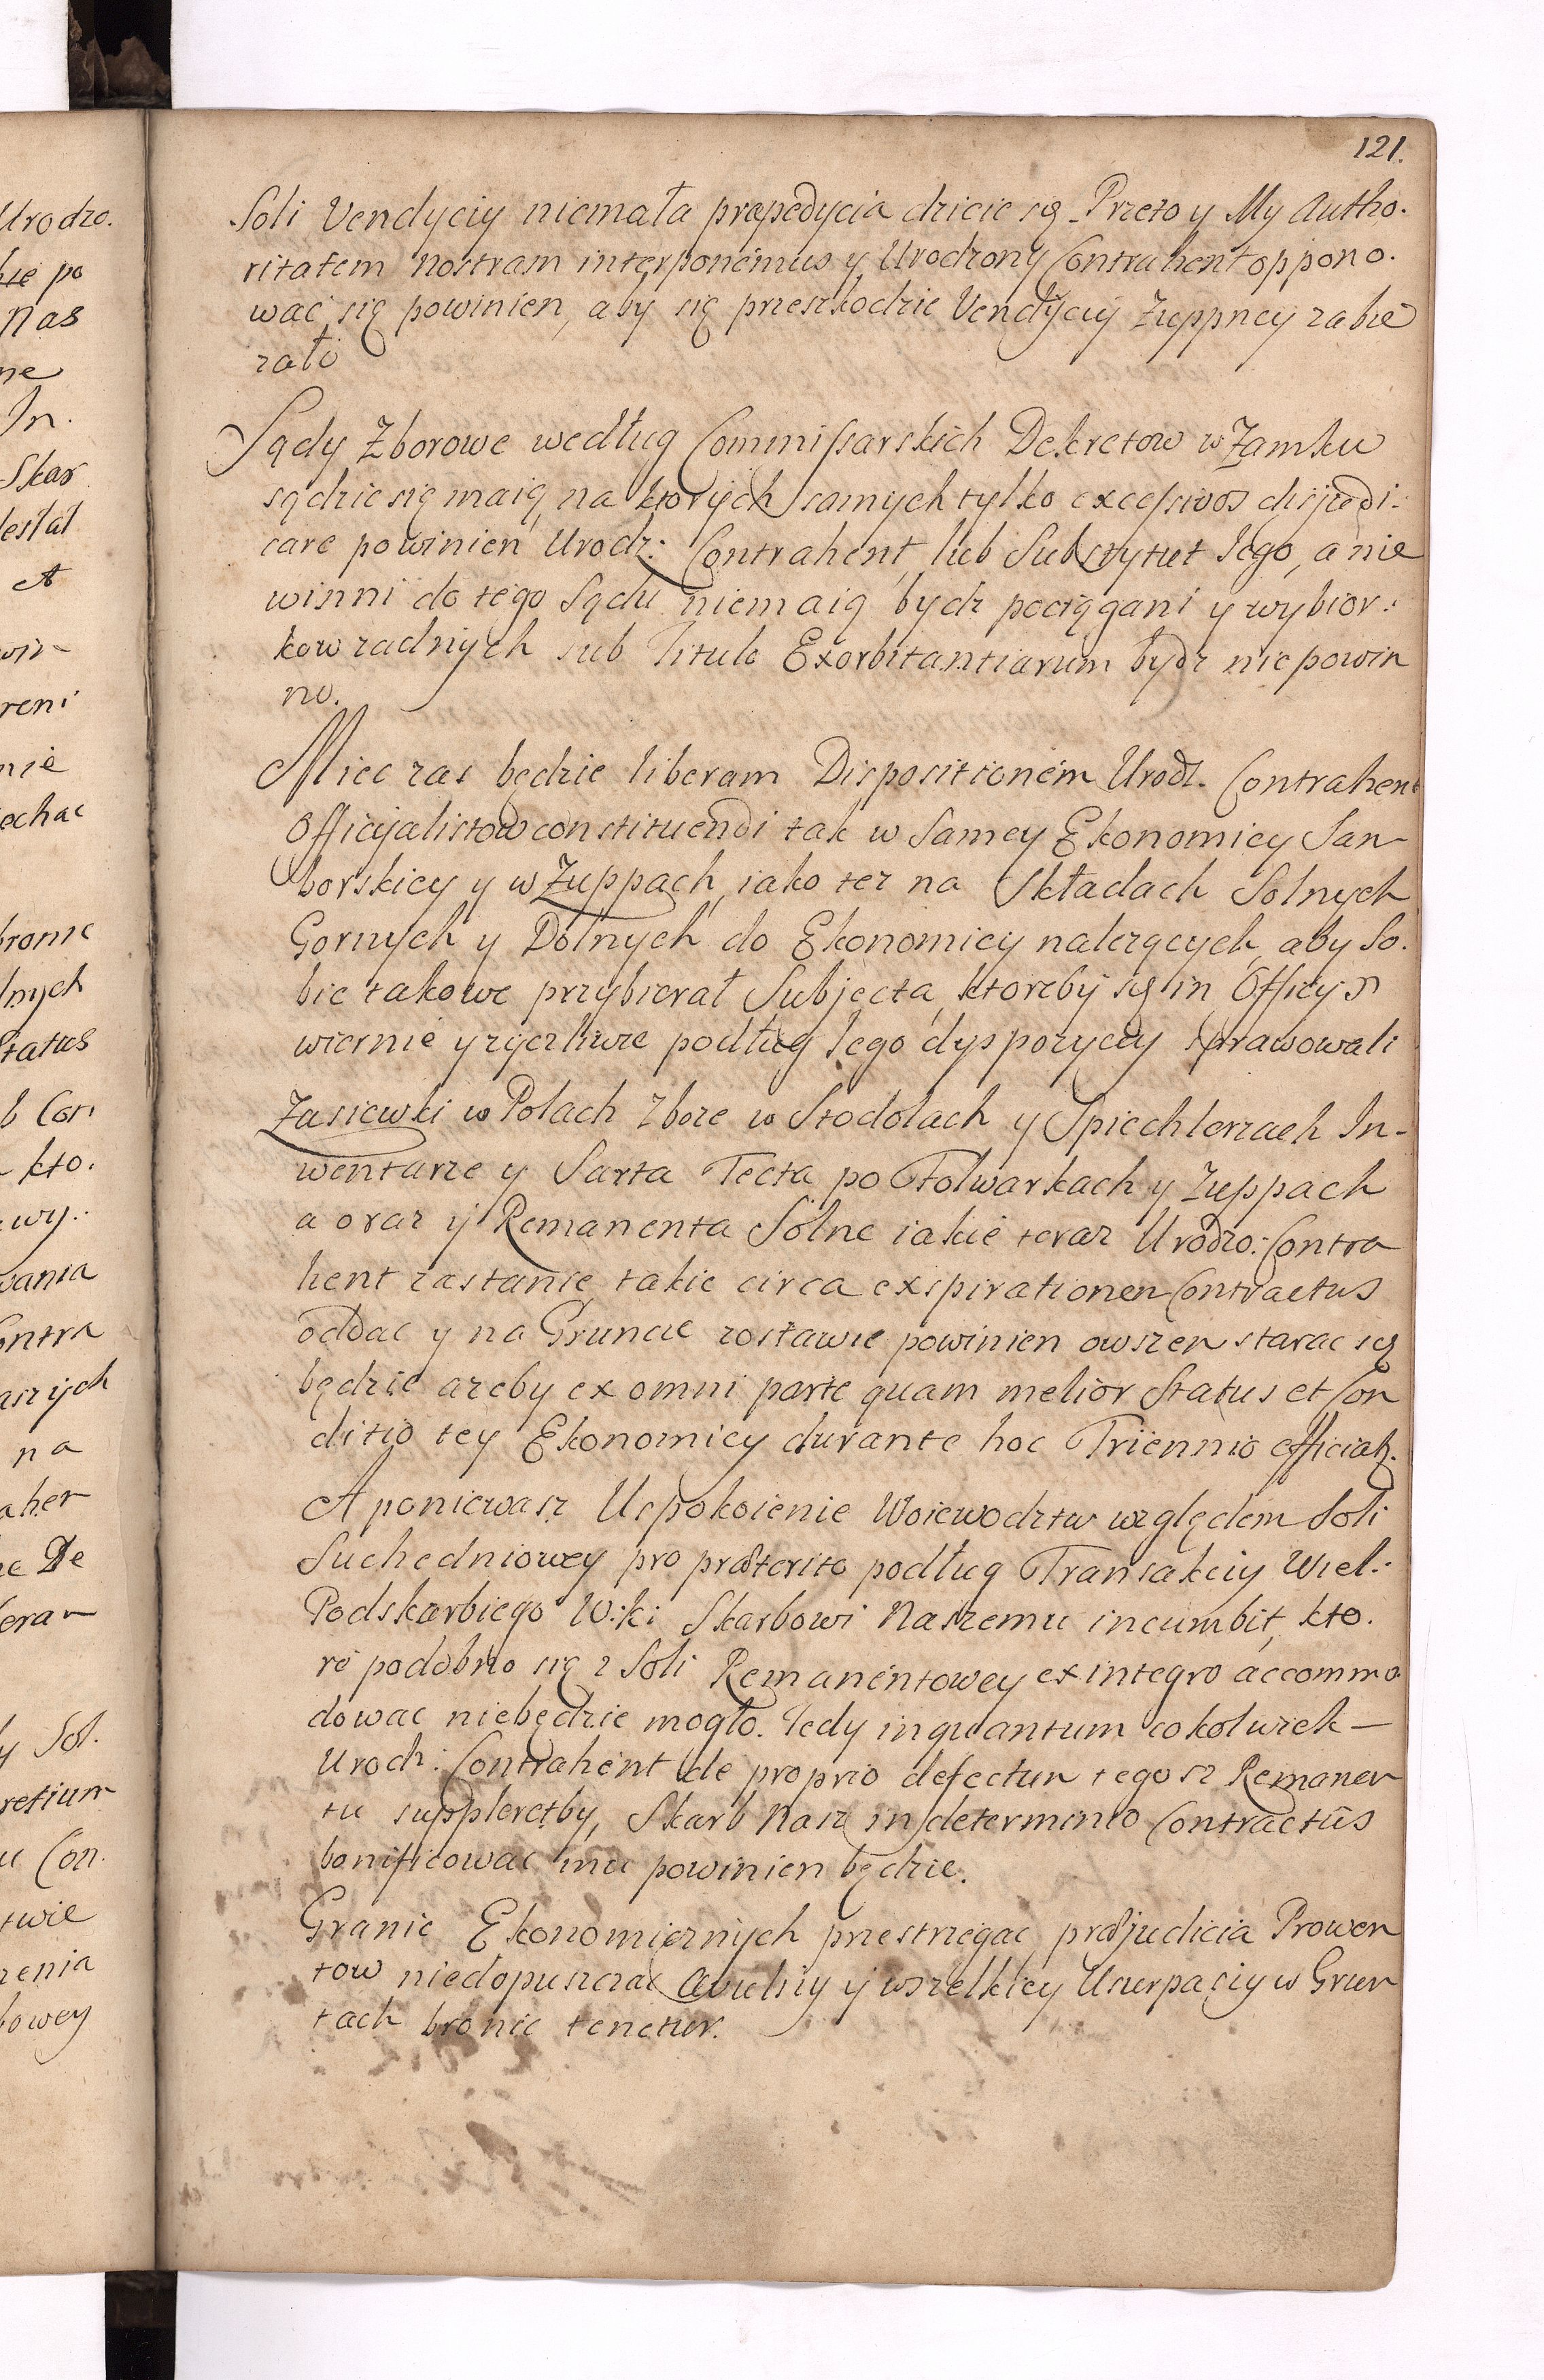 Urodzo.
po
Nas
ne
In.
Skar
A
win-
reni
nie
echac
bronic
lnych
Status
b Con
kto.
wy..
wania
ontra
aszych
na
aher
De
Sol.
retium
u Con.
twie
zenia
bowey
121.
Soli Vendyciy niemała propedycia dzieie się. Przeto y My Autho.
ritatem nostram interponémus y Urodzony Contrahent oppono.
wać się powinien, aby się przeszkodzie Vendyciy Zuppney zabie
rało
Sądy Zborowe według Commissarskich Dekretow w Zamku
sądzic się maią, na ktorych samych tylko excessivos disjudi:
care powinien Urodz: Contrahent, lub Substytut Iego, a nie
winni do tego Sądu niemaią bydz pociągani y wybior:
kow zadnych sub Titulo Exorbitantiarum bydz nie powin
no.
Miec zas będzie liberam Dispositionem Urodz. Contrahent
Officyalistow constituendi tak w Samey Ekonomiey Sam-
borskiey y w Zuppach, iako tez na Składach Solnych
Gornych y Dolnych do Ekonomiey nalezących, aby So.
bie takowe przybierał Subjecta, ktoreby się in Officys
wiernie y zyczliwie podług Iego dyspozycyy sprawowali
Zasiewki w Polach Zboze w Stodolach y Spiechlerzach In-
wentarze y Sarta Tecta po Folwarkach y Zuppach
a oraz y Remanenta Solne iakie teraz Urodzo: Contra
hent zastanie, takie circa exspirationem Contractus
oddac y na Gruncie zostawic powinien owszem starac się
będzie azeby ex omni parte quam melior Status et Con
ditio tey Ekonomiey durante hoc Triennio efficiatur.
A poniewasz Uspokoienie Woiewodztw względem Soli
Suchedniowey pro præterito podług Transakciy Wiel:
Podskarbiego W:ki Skarbowi Naszemu incumbit, kto.
re podobno się z Soli Remanentowey ex integro accommo
dowac niebędzie mogło. Tedy in quantum cokolwiek—
Urodz: Contrahent de proprio defectum tegosz Remanen
tu suppleretby, Skarb Nasz in determino Contractûs
bonificowac mu powinien będzie.
Granic Ekonomicznych przestrzegac, præjudicia Prowen
tow niedopuszczac Avulsiy y wszelkiey Usurpaciy w Grun
tach bronic tenetur.